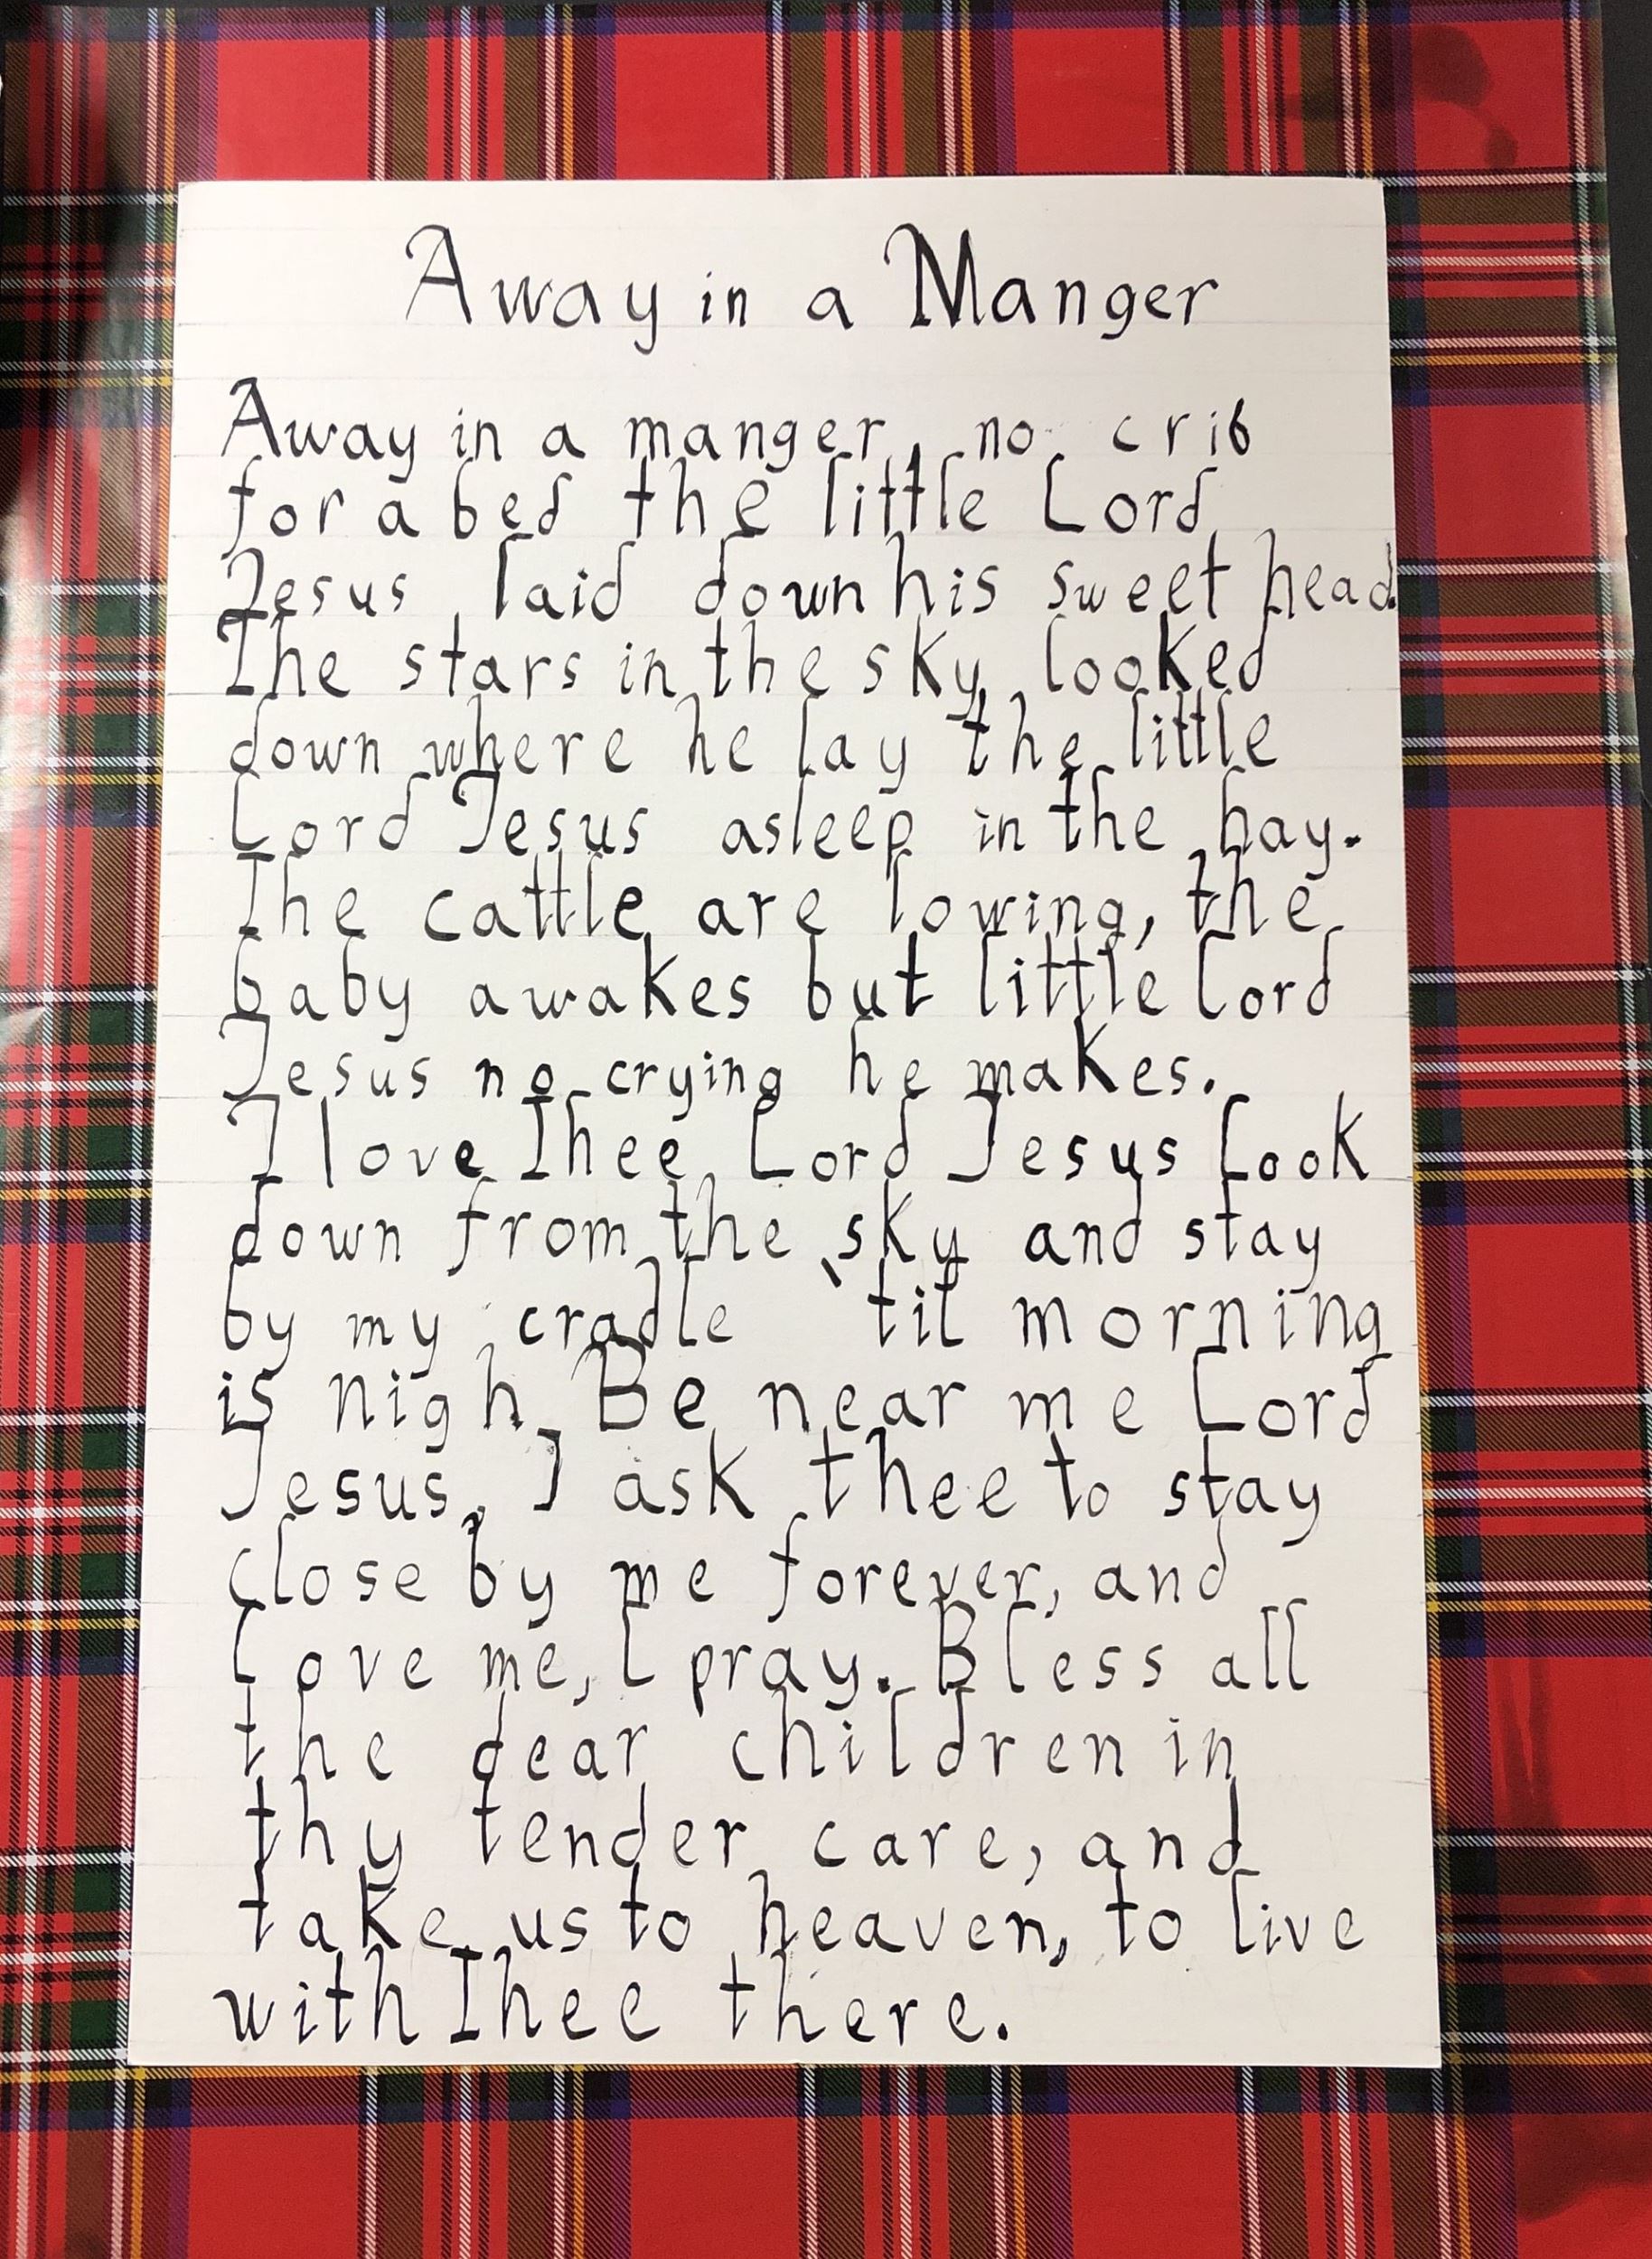 Away in a Manger
Away in a manger, no crib
for a bed the little Lord
Jesus laid down his sweet head.
The stars in the sky looked
down where he lay the little
Lord Jesus asleep in the hay.
The cattle are lowing, the
baby awakes but little Lord
Jesus no crying he makes.
I love Thee Lord Jesus Look
down from the sky and stay
by my cradle 'til morning
is nigh. Be near me Lord
Jesus, I ask thee to stay
close by me forever, and
love me, I pray. Bless all
the dear children in
thy tender care, and
take us to heaven, to live
with Thee there.